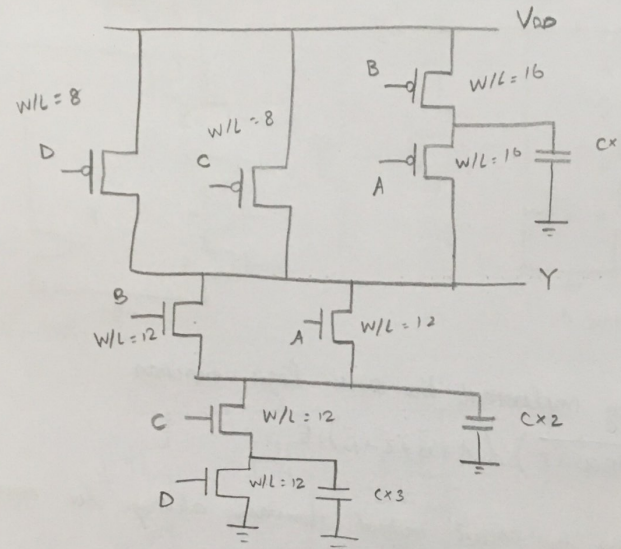 VDD
B
W/L = 16
W/L = 8
W/L = 8
D
C
A
W/L = 16
CX
Y
B
W/L = 12
A
W/L = 12
C
W/L = 12
CX2
D
W/L = 12
CX3